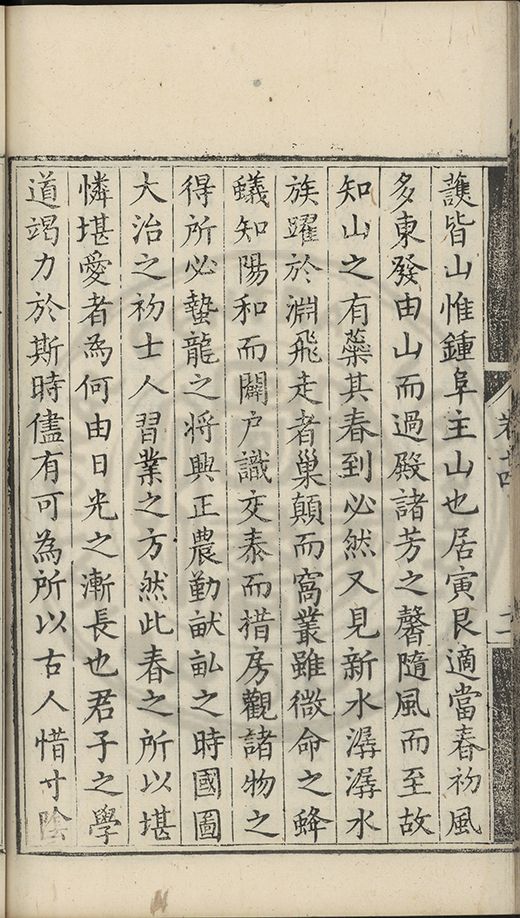 護皆山惟鍾阜主山也居寅艮適當春初風
多東發由山而過殿諸芳之馨隨風而至故
知山之有蘂其春到必然又見新水潺潺水
族躍於淵飛走者巢顛而窩叢雖微命之蜂
蟻知陽和而闢户識交泰而措房觀諸物之
得所必蟄龍之將興正農勤畎畝之時國圖
大治之初士人習業之方然此春之所以堪
憐堪愛者為何由日光之漸長也君子之學
道竭力於斯時儘有可為所以古人惜寸陰
卷十四
二